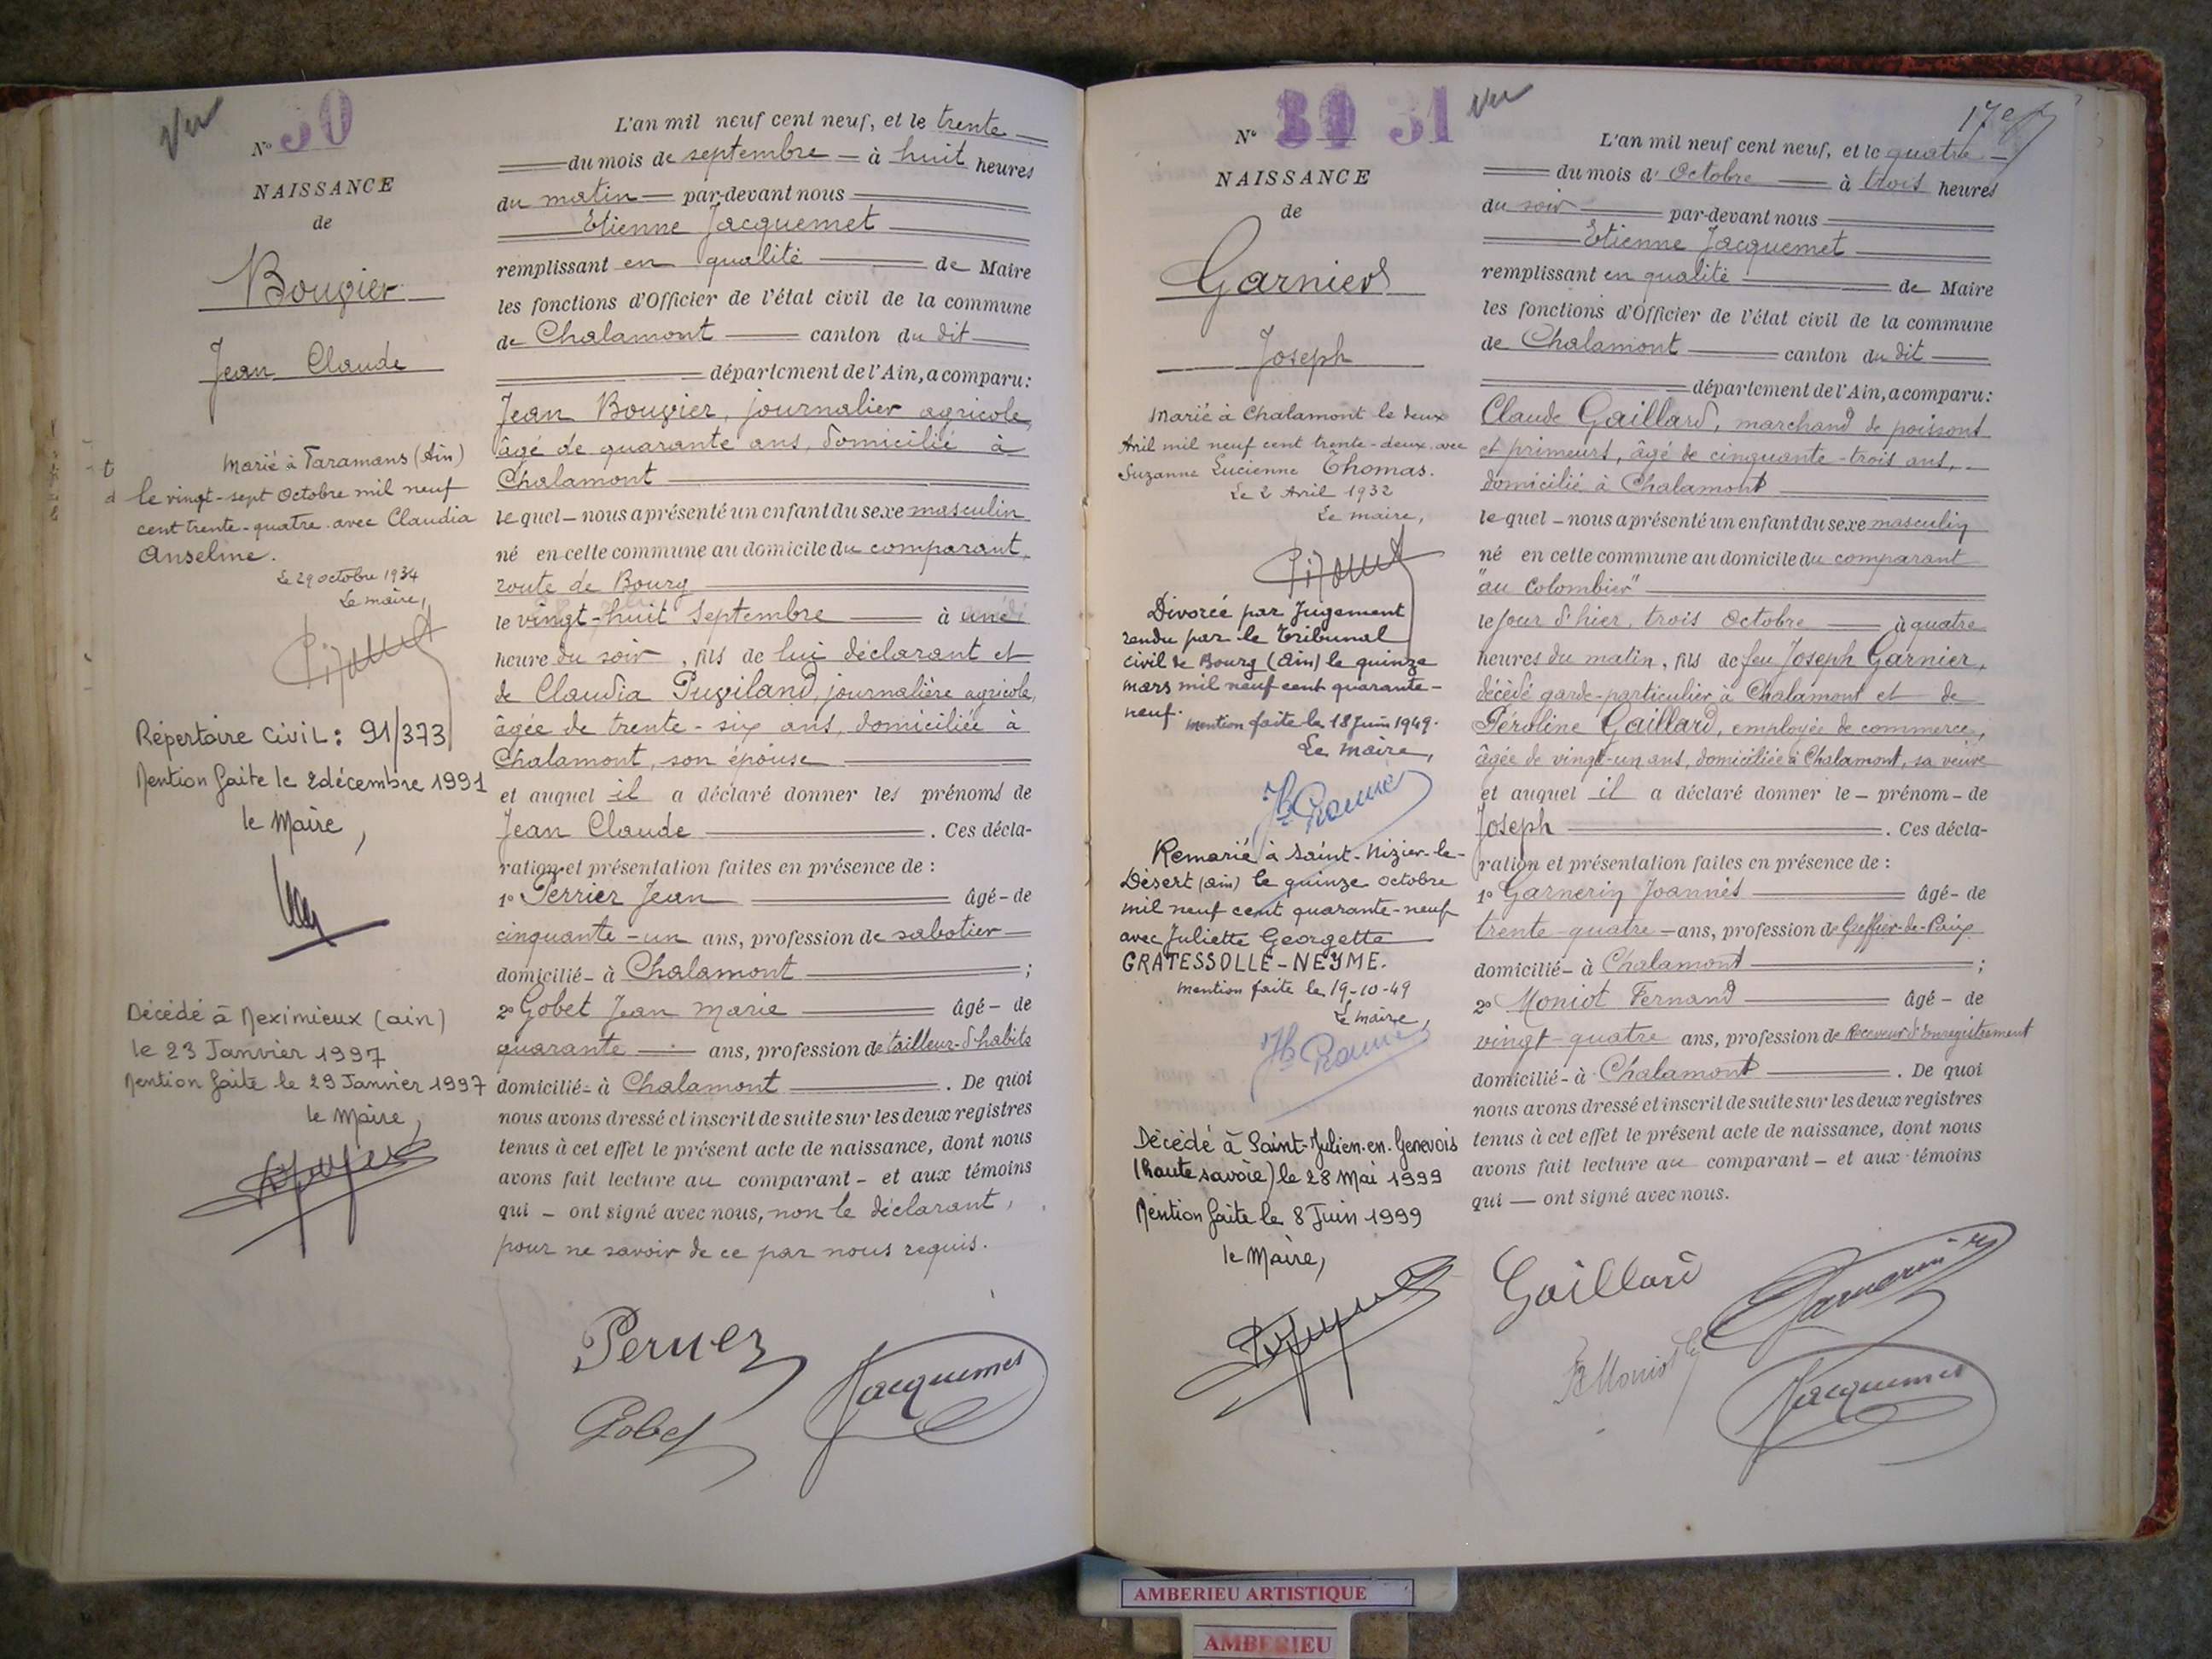 Vu
N° 30
NAISSANCE
de
Bouvier
Jean Claude
Marié à Faramans (Ain)
le vingt-sept Octobre mil neuf
cent trente-quatre avec Claudia
Anselme.
Le 29 octobre 1934
Le maire,
Répertoire Civil : 91/373
Mention faite le 2 décembre 1991
le Maire,
Décédé à Meximieux (ain)
le 23 Janvier 1997
Mention faite le 29 Janvier 1997
le Maire,
L'an mil neuf cent neuf, et le trente
du mois de septembre à huit heures
du matin par-devant nous
Etienne Jacquemet
remplissant en qualité de Maire
les fonctions d'Officier de l'état civil de la commune
de Chalamont canton du dit
département de l'Ain, a comparu :
Jean Bouvier, journalier agricole,
âgé de quarante ans, domicilié à
Chalamont
lequel nous a présenté un enfant du sexe masculin
né en cette commune au domicile du comparant,
route de Bourg
le vingt-huit Septembre à une
heure du soir, fils de lui déclarant et
de Claudia Pugiland, journalière agricole,
âgée de trente-six ans, domiciliée à
Chalamont, son épouse
et auquel il a déclaré donner les prénoms de
Jean Claude . Ces décla-
ration et présentation faites en présence de :
1° Perrier Jean âgé de
cinquante-un ans, profession de sabotier
domicilié à Chalamont ;
2° Gobet Jean Marie âgé de
quarante ans, profession de tailleur-d'habits
domicilié à Chalamont . De quoi
nous avons dressé et inscrit de suite sur les deux registres
tenus à cet effet le présent acte de naissance, dont nous
avons fait lecture au comparant et aux témoins
qui ont signé avec nous, non le déclarant,
pour ne savoir de ce par nous requis.
Perrier
Gobet
Jacquemet
N° 31
Vu
NAISSANCE
de
Garnier
Joseph
Marié à Chalamont le deux
Avril mil neuf cent trente-deux avec
Suzanne Lucienne Thomas.
Le 2 Avril 1932
Le maire,
Divorcé par Jugement
rendu par le Tribunal
Civil de Bourg (Ain) le quinze
mars mil neuf cent quarante-
neuf. mention faite le 18 Juin 1949.
Le maire,
Remarié à Saint-Nizier-le-
Désert (ain) le quinze octobre
mil neuf cent quarante-neuf
avec Juliette Georgette
GRATESSOLLE-NEYME.
mention faite le 19-10-49
Le maire,
Décédé à Saint-Julien-en-Genevois
(haute savoie) le 28 Mai 1999
Mention faite le 8 Juin 1999
le Maire,
L'an mil neuf cent neuf, et le quatre
du mois d'Octobre à trois heures
du soir par-devant nous
Etienne Jacquemet
remplissant en qualité de Maire
les fonctions d'Officier de l'état civil de la commune
de Chalamont canton du dit
département de l'Ain, a comparu :
Claude Gaillard, marchand de poissons
et primeurs, âgé de cinquante-trois ans,
domicilié à Chalamont
lequel nous a présenté un enfant du sexe masculin
né en cette commune au domicile du comparant
"au Colombier"
le Jour d'hier, trois Octobre à quatre
heures du matin, fils de feu Joseph Garnier,
décédé garde-particulier à Chalamont et de
Péroline Gaillard, employée de commerce,
âgée de vingt-un ans, domiciliée à Chalamont, sa veuve
et auquel il a déclaré donner le prénom de
Joseph . Ces décla-
ration et présentation faites en présence de :
1° Garnerin Joannès âgé de
trente-quatre ans, profession de Greffier-de-Paix
domicilié à Chalamont ;
2° Moniot Fernand âgé de
vingt-quatre ans, profession de Receveur d'Enregistrement
domicilié à Chalamont . De quoi
nous avons dressé et inscrit de suite sur les deux registres
tenus à cet effet le présent acte de naissance, dont nous
avons fait lecture au comparant et aux témoins
qui ont signé avec nous.
Gaillard
Garnerin
Moniot
Jacquemet
AMBERIEU ARTISTIQUE
AMBERIEU